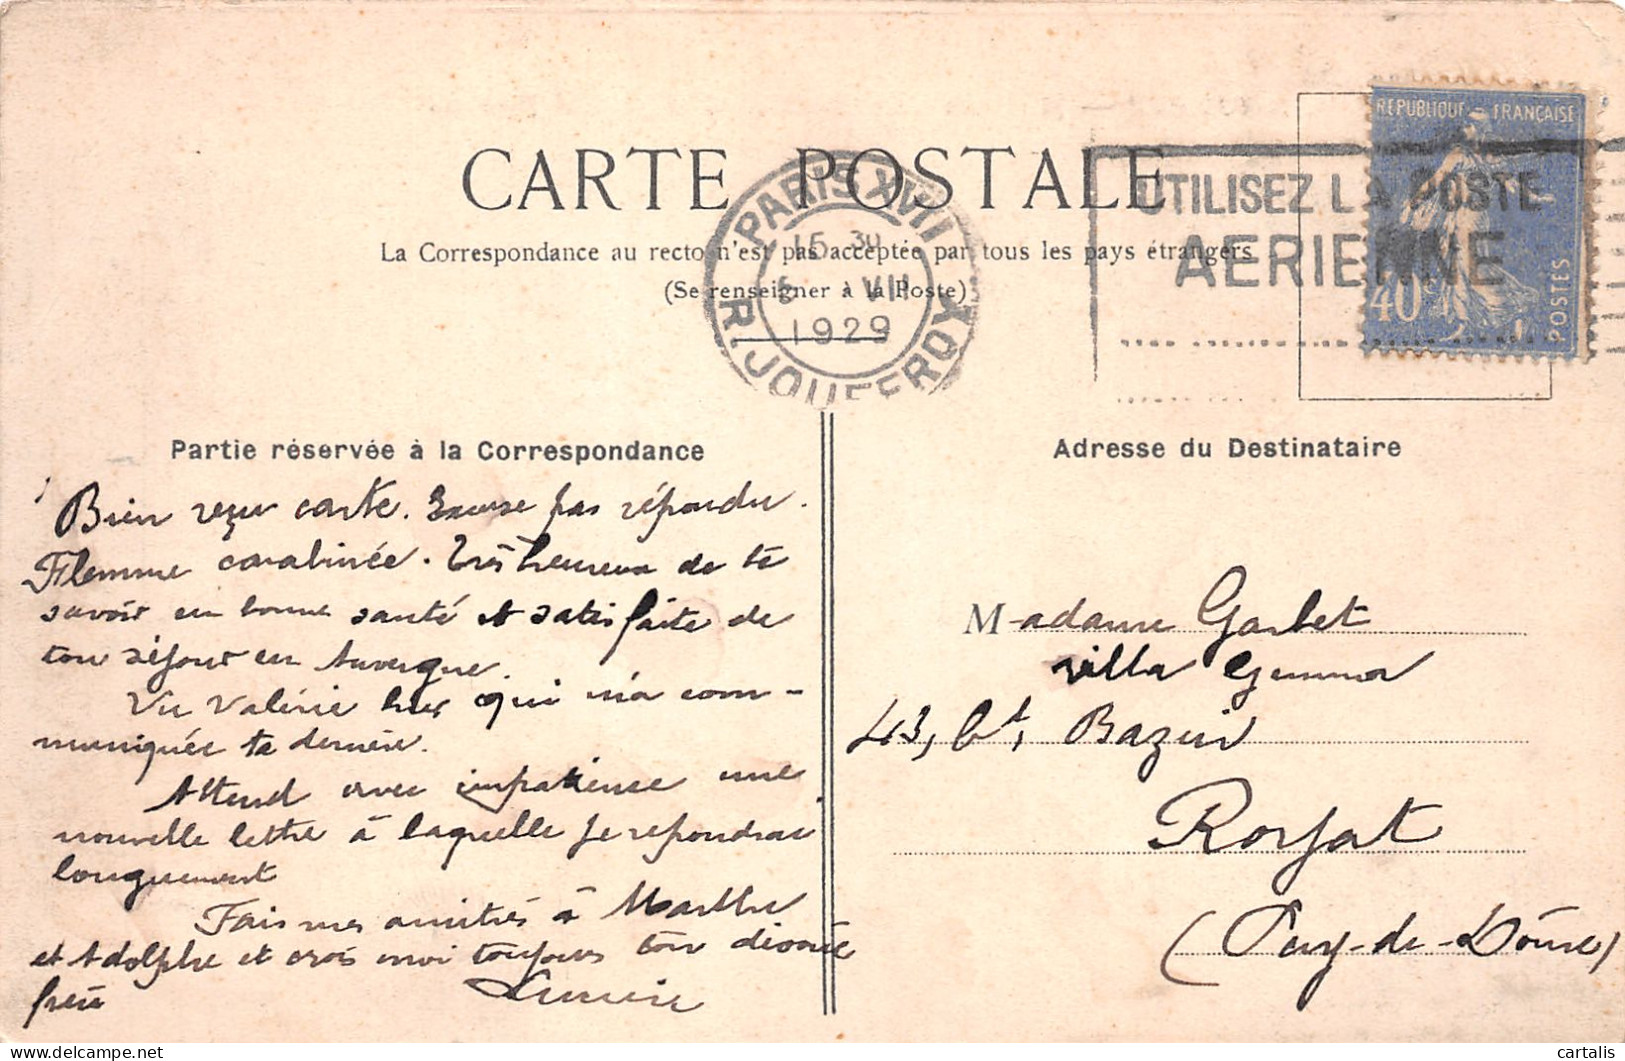 CARTE POSTALE
La Correspondance au recto n'est pas acceptée par tous les pays étrangers
(Se renseigner à la Poste)
PARIS XVII
15 30
6 VII
1929
R. JOUFFROY
UTILISEZ LA POSTE
AERIENNE
REPUBLIQUE FRANÇAISE
40c
POSTES
Partie réservée à la Correspondance
Bien reçu carte. Excuse pas répondu.
Flemme carabinée. Très heureux de te
savoir en bonne santé et satisfaite de
ton séjour en Auvergne.
Vu Valérie hier qui m'a com-
muniquée ta dernière.
Attend avec impatience une
nouvelle lettre à laquelle je repondrai
longuement
Fais mes amitiés à Marthe
et Adolphe et crois moi toujours ton
frère
Adresse du Destinataire
Madame Garbet
villa Gemma
43, bd, Bazin
Royat
(Puy-de-Dôme)
cartalis